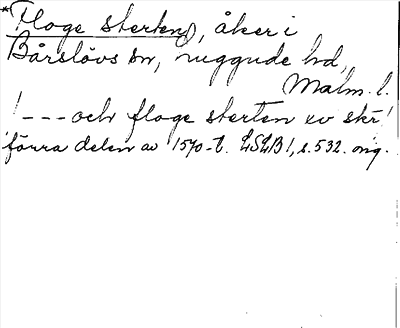 *Floge sterten, åker i
Bårslövs sn, ruggude hd,
Malm. l.
! --- och floge sterten xv skr!
förra delen av 1570-t. LSLB I, s. 532. orig.